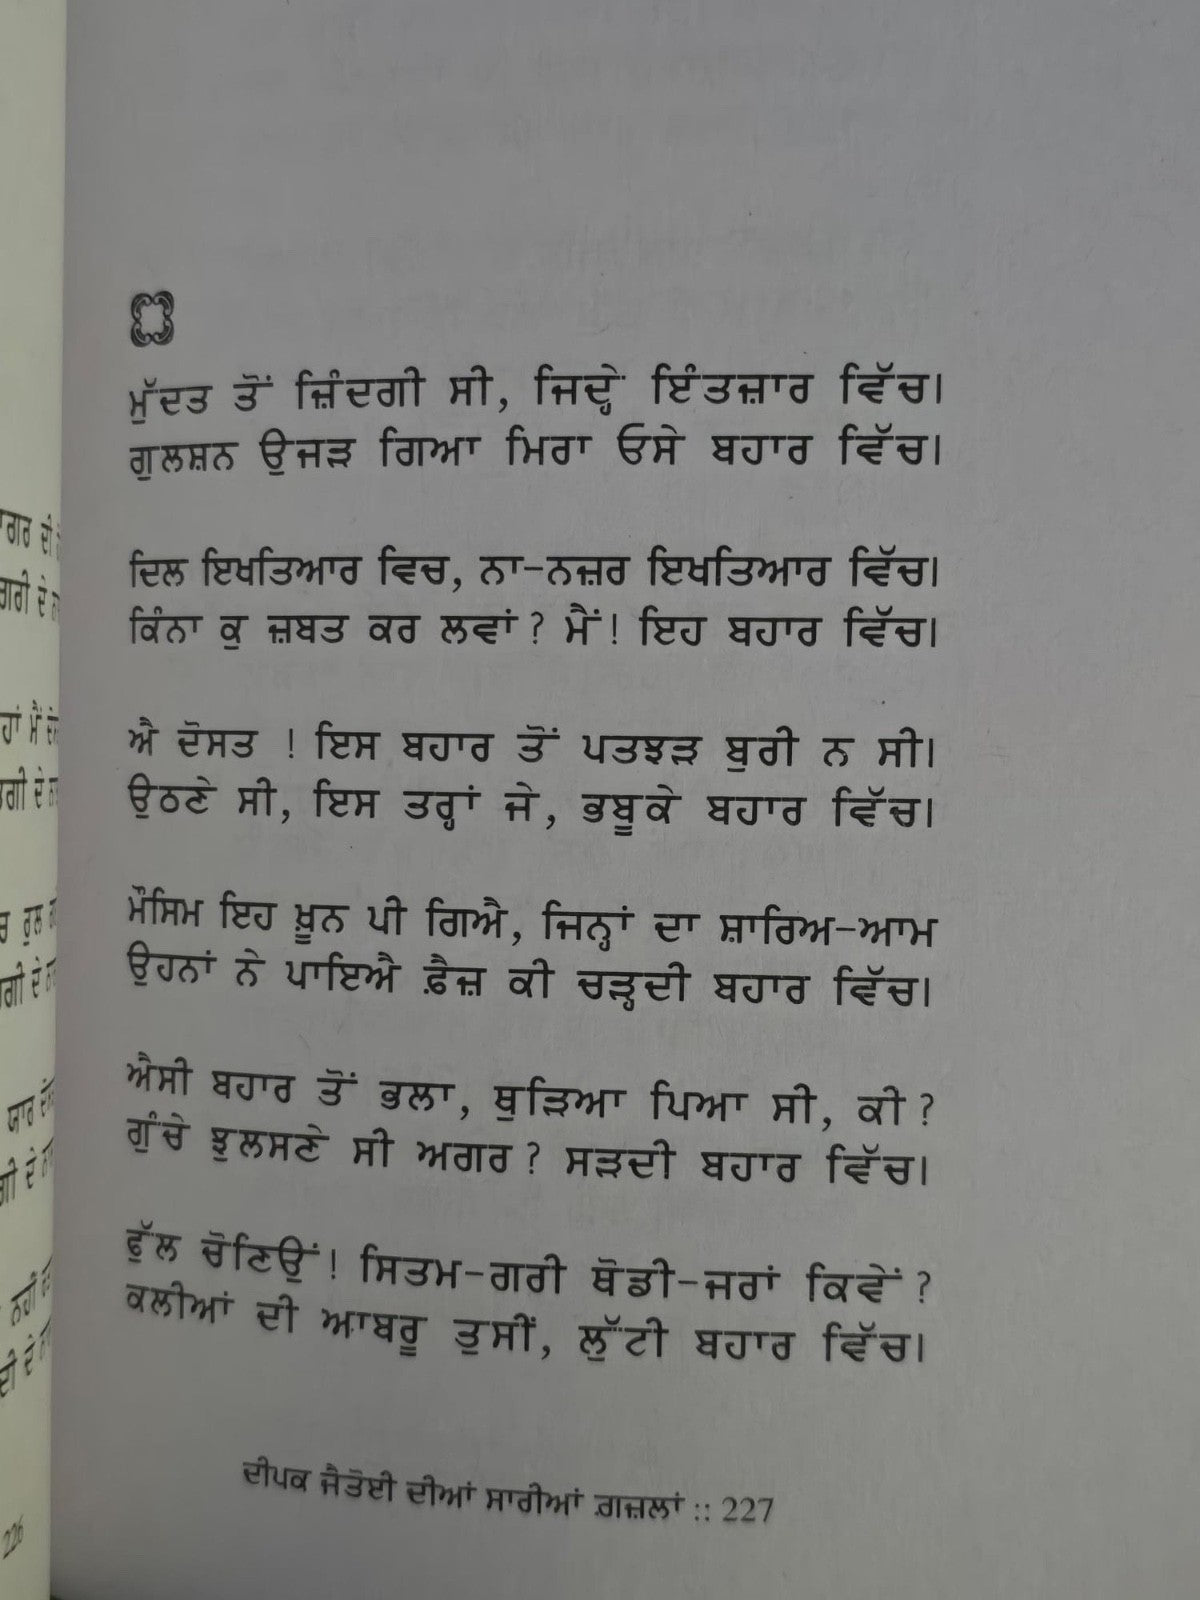 ਮੁੱਦਤ ਤੋਂ ਜ਼ਿੰਦਗੀ ਸੀ, ਜਿਦ੍ਹੇ ਇੰਤਜ਼ਾਰ ਵਿੱਚ।
ਗੁਲਸ਼ਨ ਉਜੜ ਗਿਆ ਮਿਰਾ ਓਸੇ ਬਹਾਰ ਵਿੱਚ।
ਦਿਲ ਇਖਤਿਆਰ ਵਿਚ, ਨਾ-ਨਜ਼ਰ ਇਖਤਿਆਰ ਵਿੱਚ।
ਕਿੰਨਾ ਕੁ ਜ਼ਬਤ ਕਰ ਲਵਾਂ? ਮੈਂ! ਇਹ ਬਹਾਰ ਵਿੱਚ।
ਐ ਦੋਸਤ ! ਇਸ ਬਹਾਰ ਤੋਂ ਪਤਝੜ ਬੁਰੀ ਨ ਸੀ।
ਉਠਣੇ ਸੀ, ਇਸ ਤਰ੍ਹਾਂ ਜੇ, ਭਬੂਕੇ ਬਹਾਰ ਵਿੱਚ।
ਮੌਸਿਮ ਇਹ ਖ਼ੂਨ ਪੀ ਗਿਐ, ਜਿਨ੍ਹਾਂ ਦਾ ਸ਼ਾਰਿਅ-ਆਮ
ਉਹਨਾਂ ਨੇ ਪਾਇਐ ਫ਼ੈਜ਼ ਕੀ ਚੜ੍ਹਦੀ ਬਹਾਰ ਵਿੱਚ।
ਐਸੀ ਬਹਾਰ ਤੋਂ ਭਲਾ, ਥੁੜਿਆ ਪਿਆ ਸੀ, ਕੀ?
ਗੁੰਚੇ ਝੁਲਸਣੇ ਸੀ ਅਗਰ? ਸੜਦੀ ਬਹਾਰ ਵਿੱਚ।
ਫੁੱਲ ਚੋਣਿਉਂ! ਸਿਤਮ-ਗਰੀ ਥੋਡੀ-ਜਰਾਂ ਕਿਵੇਂ?
ਕਲੀਆਂ ਦੀ ਆਬਰੂ ਤੁਸੀਂ, ਲੁੱਟੀ ਬਹਾਰ ਵਿੱਚ।
ਦੀਪਕ ਜੈਤੋਈ ਦੀਆਂ ਸਾਰੀਆਂ ਗ਼ਜ਼ਲਾਂ :: 227